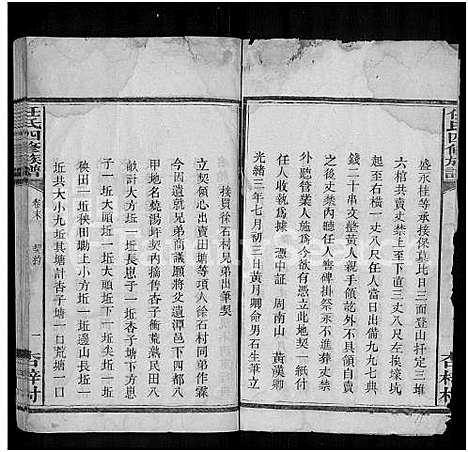 盛永桂等承接保墓比日三面登山扦定三堆
六棺共賣丈禁上至下直三丈八尺左挨壕坑
起至右橫一丈八尺任人當日出備九九七典
錢二十串文整黃人親手領訖外不具領自賣
之後丈禁內聽任人醮祭掛祭永不進葬丈禁
外聽管業人施為今欲有憑立此地契一紙付
任人收執為據 憑中証 周南山 黃漢卿
光緒三年七月初三日黃月卿命男石生筆立
任氏四修族譜
杏梓村
任氏四修族譜
卷末
契約
一
杏梓村
接買徐石村兄弟出筆契
立契傾心出賣田塘等項人徐石村同弟作霖
今因遺就兄弟商議願將父遺潭邑下四都八
甲地名燒湯坵契內摘售杏子衝荒熱民田八
畝計大小一坵長思子一坵大塘下方思
子一坵大塘下一坵大頭坵下一坵尖尾坵一坵
秧田二坵秧田墈上小方坵一坵邊山長坵一
坵共大小九坵其塘計杏子塘一口荒塘一口